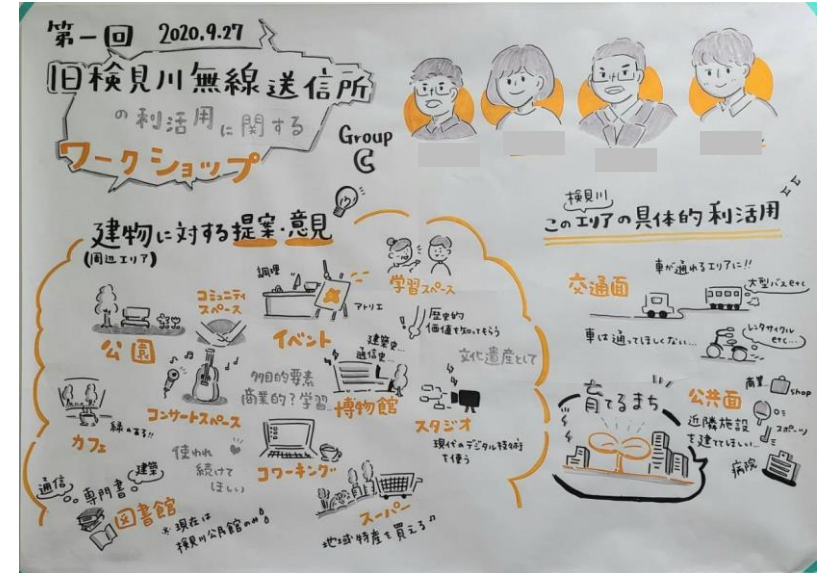 第一回 2020.9.27
旧検見川無線送信所
の利活用に関する
ワークショップ
Group
C
建物に対する提案・意見
(周辺エリア)
学習スペース
コミュニティ
スペース
調理
アトリエ
公園
イベント
歴史的
価値を知ってもらう
文化遺産として
建築史…
通信史…
コンサートスペース
多目的要素
商業的?学習…
博物館
スタジオ
現代のデジタル技術
を使う
カフェ
緑のある!!
使われ
続けて
ほしい
コワーキング
通信
専門書
建築
図書館
*現在は
検見川公民館のみ
スーパー
地域特産を買える
検見川
このエリアの具体的利活用
交通面
車が通れるエリアに!!
大型バスetc
車は通ってほしくない…
レンタサイクル
etc…
育てるまち
公共面
商業…
shop
スポーツ
近隣施設
を建ててほしい…
病院